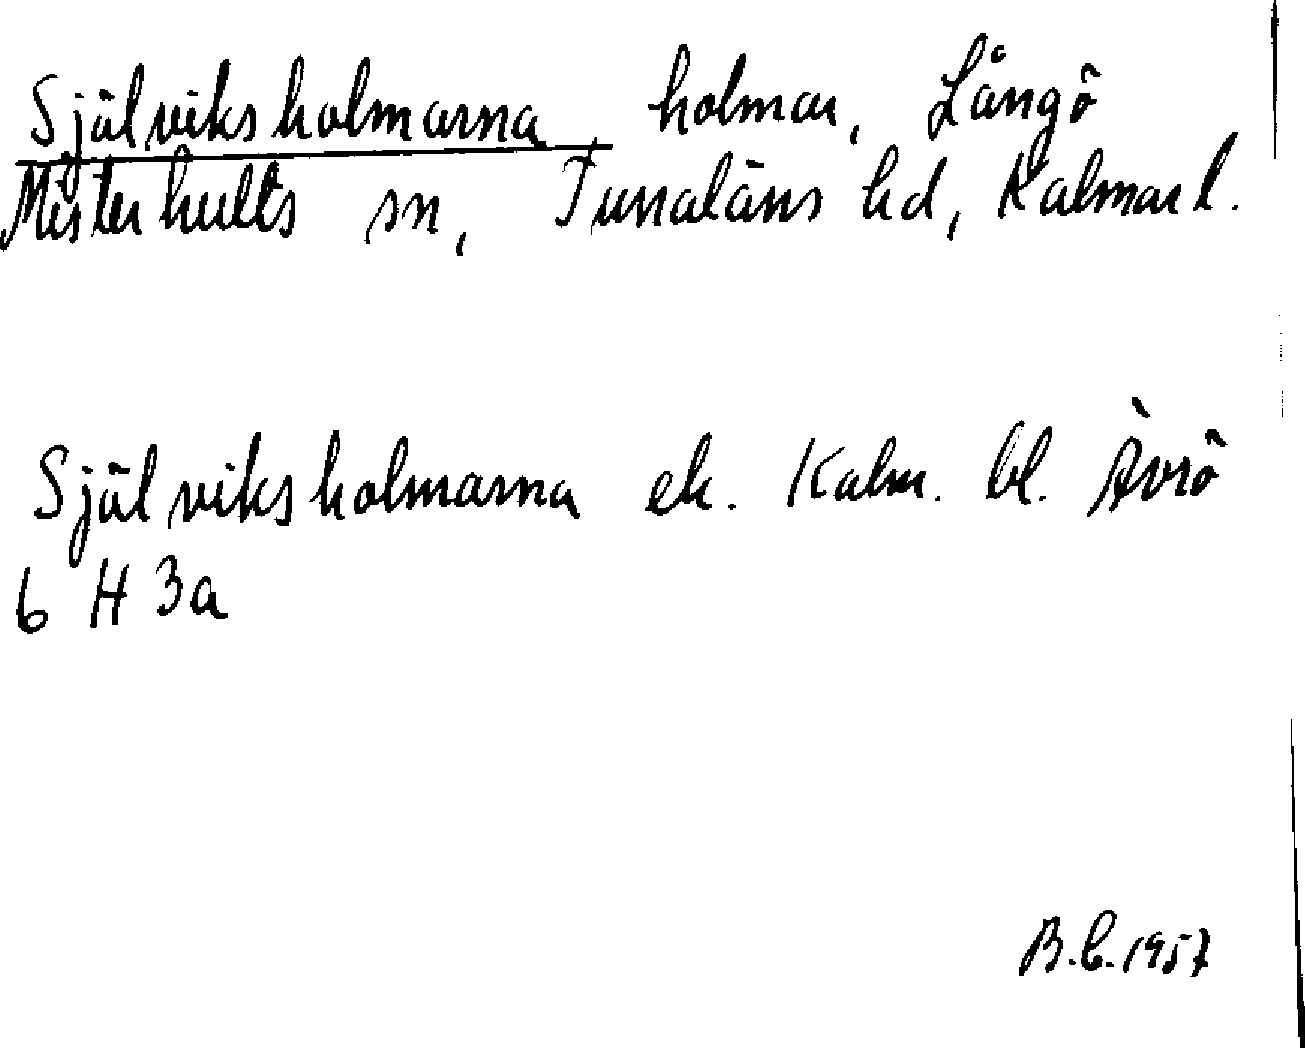 Själviksholmarna holmar, Långö
Misterhults sn, Tunaläns hd, Kalmar l.
Själviksholmarna ek. Kalm. bl. Ävrö
6 H 3a
B.C. 1957